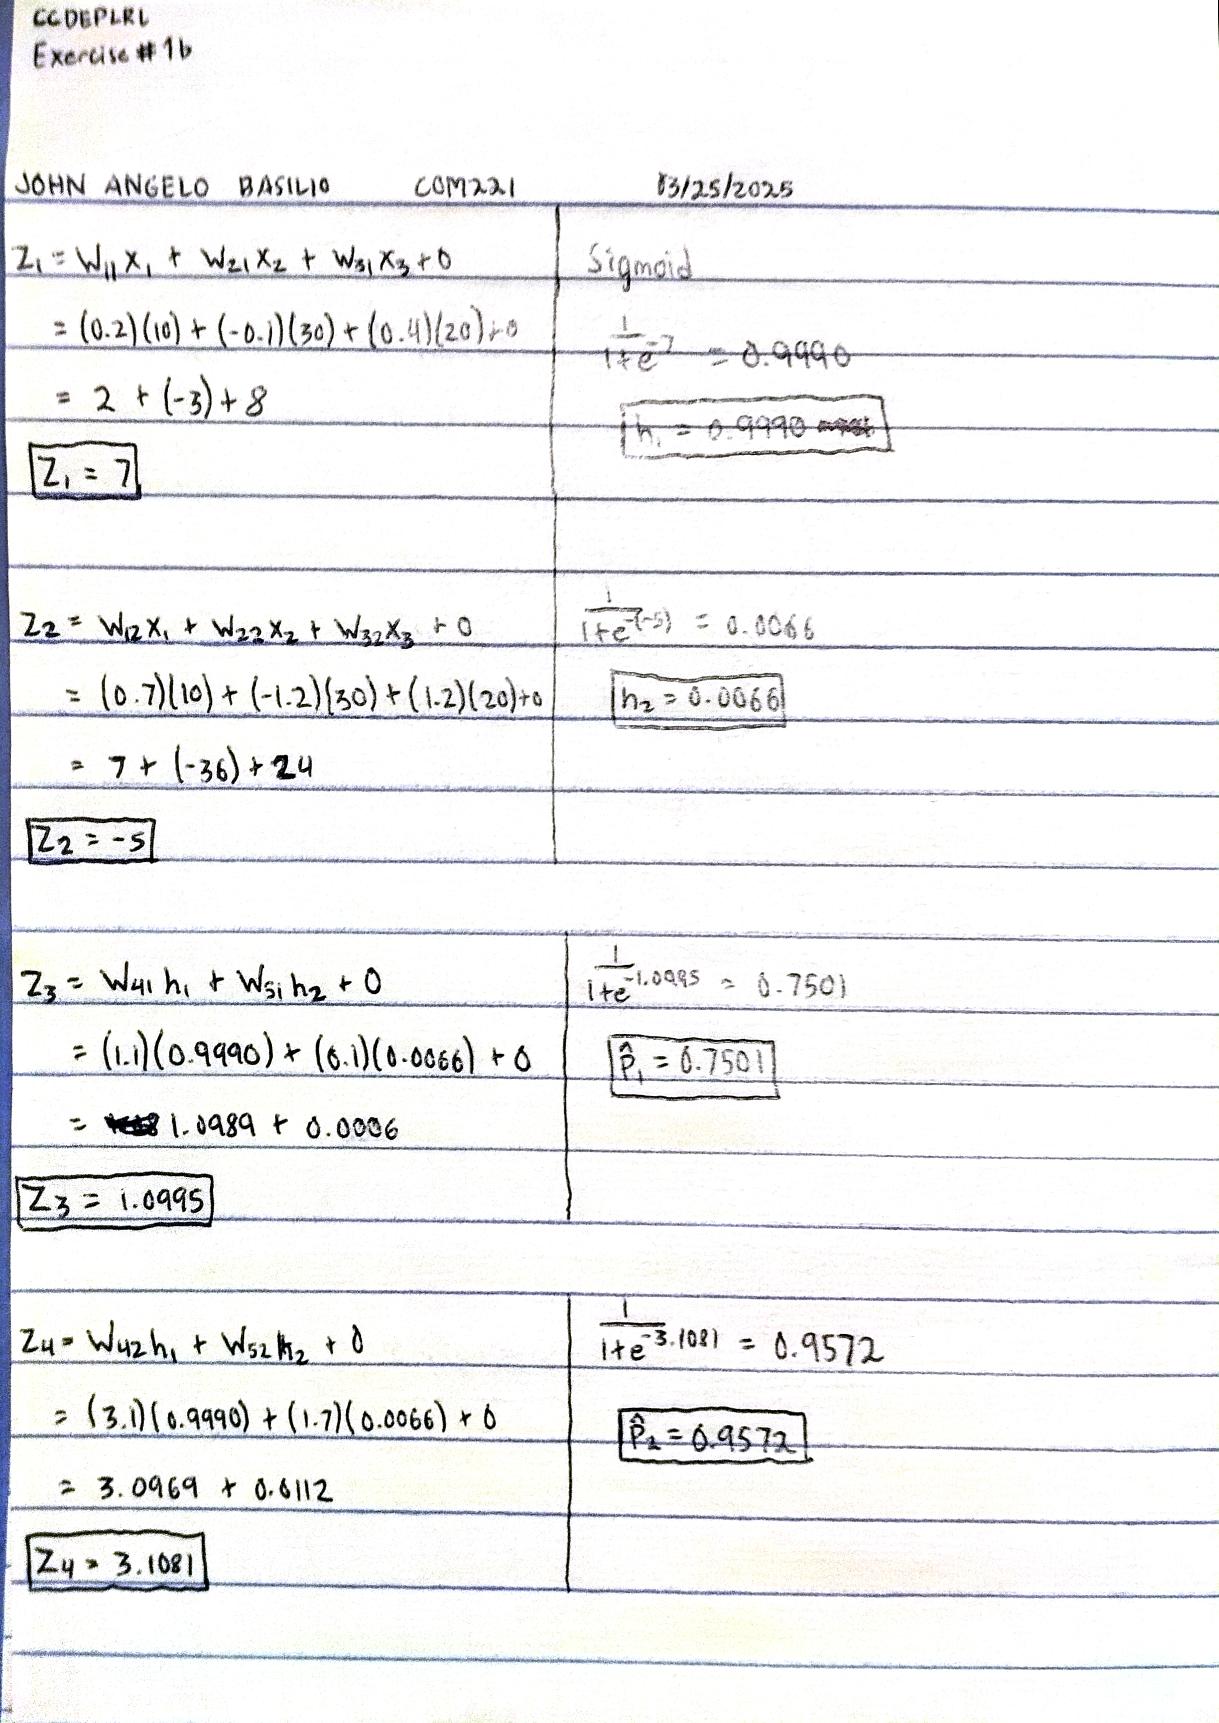 CCDEPLRL
Exercise # 1b
JOHN ANGELO BASILIO COM221 03/25/2025
Z₁ = W₁₁X₁ + W₂₁X₂ + W₃₁X₃ + 0
= (0.2)(10) + (-0.1)(30) + (0.4)(20) + 0
= 2 + (-3) + 8
Z₁ = 7
Sigmoid
1/(1+e^-7) = 0.9990
h₁ = 0.9990
Z₂ = W₁₂X₁ + W₂₂X₂ + W₃₂X₃ + 0
= (0.7)(10) + (-1.2)(30) + (1.2)(20) + 0
= 7 + (-36) + 24
Z₂ = -5
1/(1+e^-(-5)) = 0.0066
h₂ = 0.0066
Z₃ = W₄₁h₁ + W₅₁h₂ + 0
= (1.1)(0.9990) + (0.1)(0.0066) + 0
= 1.0989 + 0.0006
Z₃ = 1.0995
1/(1+e^-1.0995) = 0.7501
p̂₁ = 0.7501
Z₄ = W₄₂h₁ + W₅₂h₂ + 0
= (3.1)(0.9990) + (1.7)(0.0066) + 0
= 3.0969 + 0.0112
Z₄ = 3.1081
1/(1+e^-3.1081) = 0.9572
p̂₂ = 0.9572